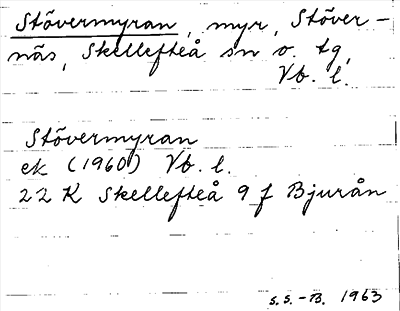 Stövermyran, myr, Stöver-
näs, Skellefteå sn o. tg,
Vb. l.
Stövermyran
ek (1960) Vb. l.
22 K Skellefteå 9 f Bjurån
S.S.-B. 1963